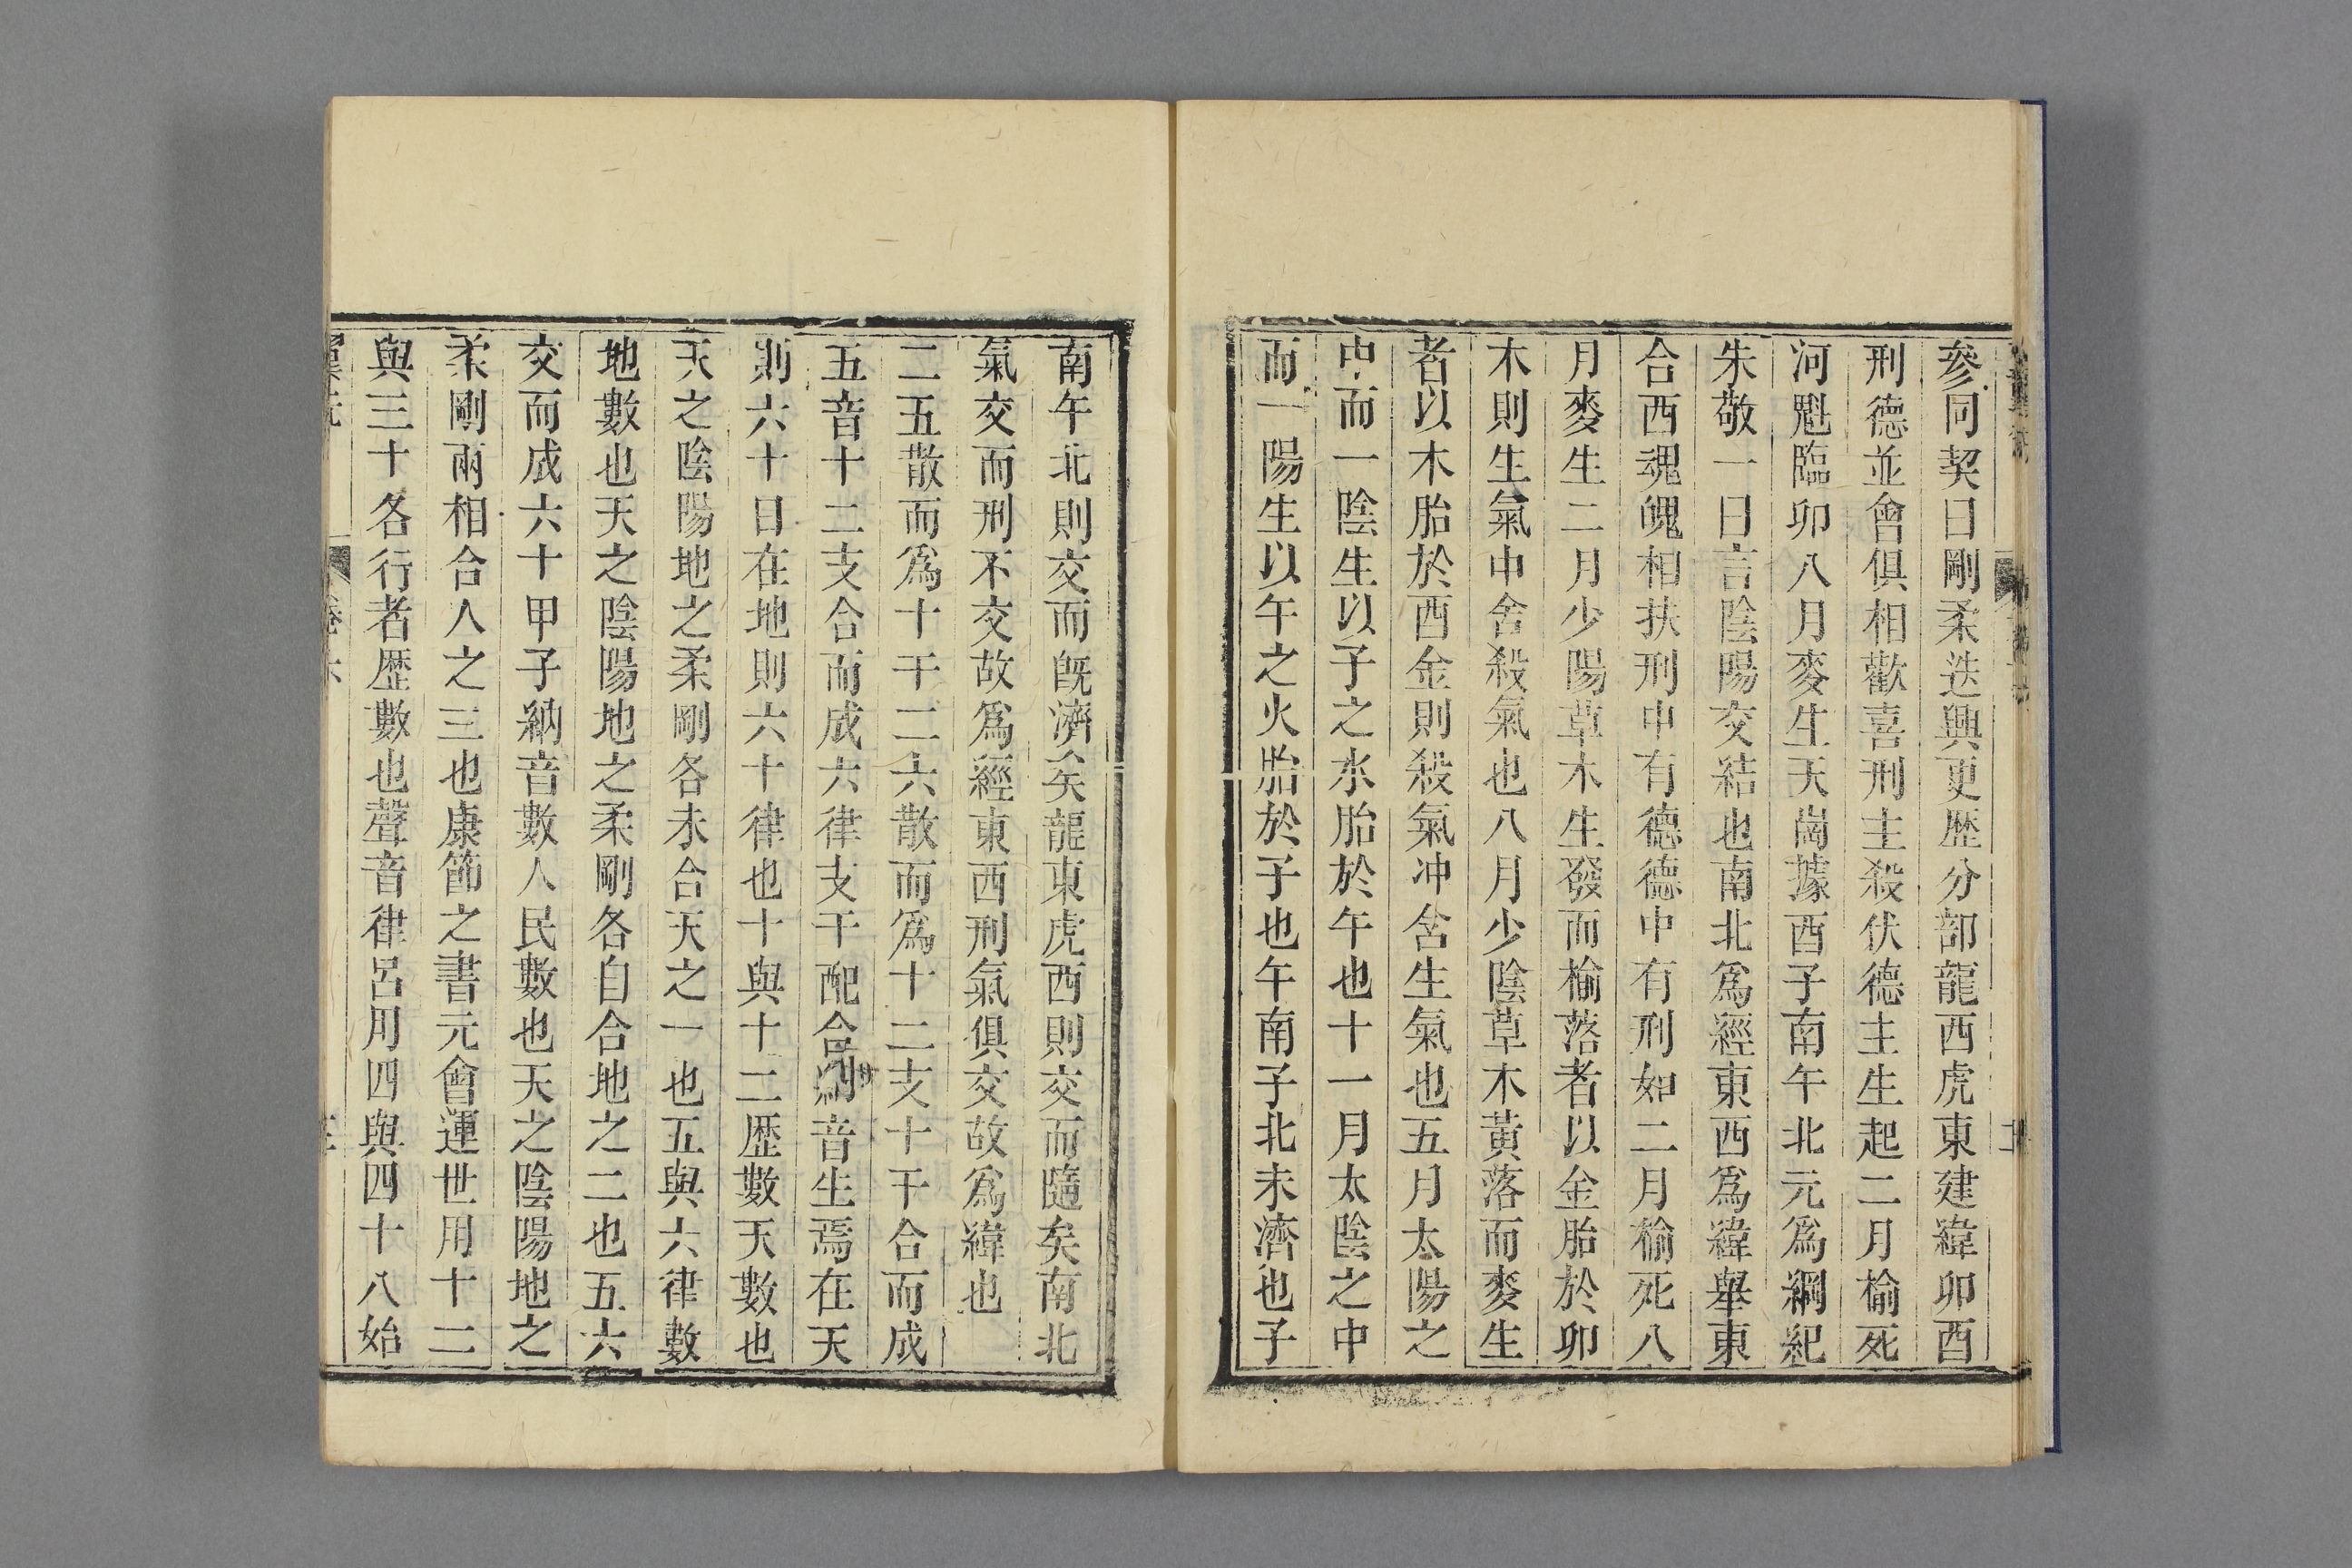 參同契曰剛柔迭興更歷分部龍西虎東建緯卯酉
刑德並會俱相歡喜刑主殺伏德主生起二月榆死
河魁臨卯八月麥生天崗據酉子南午北元爲綱紀
朱敬一曰言陰陽交結也南北爲經東西爲緯舉東
合西魂魄相扶刑中有德德中有刑如二月榆死八
月麥生二月少陽草木生發而榆落者以金胎於卯
木則生氣中舍殺氣也八月少陰草木黃落而麥生
者以木胎於酉金則殺氣冲舍生氣也五月太陽之
中而一陰生以子之水胎於午也十一月太陰之中
而一陽生以午之火胎於子也午南子北未濟也子
南午北則交而旣濟矣龍東虎西則交而隨矣南北
氣交而刑不交故爲經東西刑氣俱交故爲緯也
二五散而爲十干二六散而爲十二支十干合而成
五音十二支合而成六律支干配合納音生焉在天
則六十日在地則六十律也十與十二歷數天數也
天之陰陽地之柔剛各未合天之一也五與六律數
地數也天之陰陽地之柔剛各自合地之二也五六
交而成六十甲子納音數人民數也天之陰陽地之
柔剛兩相合人之三也康節之書元會運世用十二
與三十各行者歷數也聲音律呂用四與四十八始